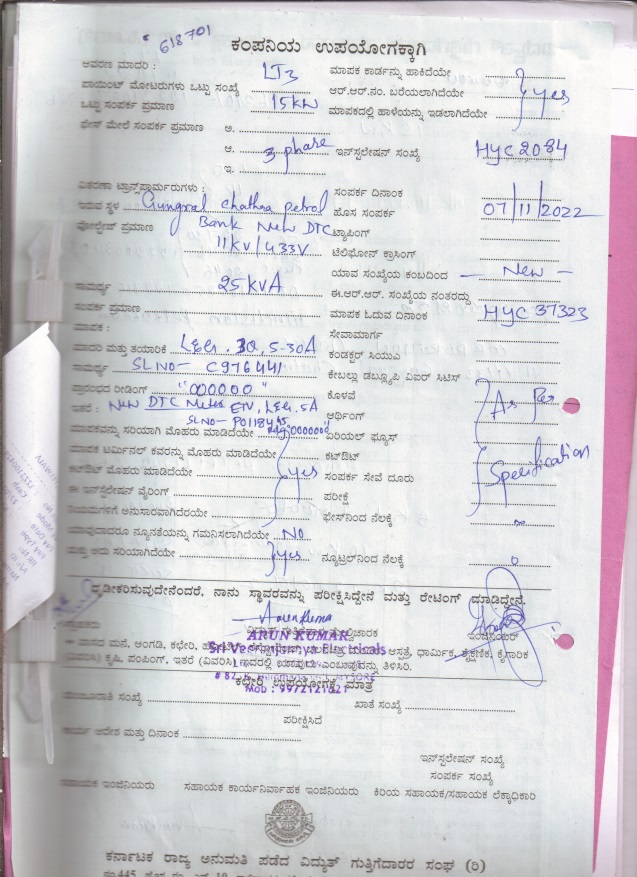 618701
ಕಂಪನಿಯ ಉಪಯೋಗಕ್ಕಾಗಿ
ಆವರಣ ಮಾದರಿ : LT3 ಮಾಪಕ ಕಾರ್ಡನ್ನು ಹಾಕಿದೆಯೇ
ಪಾಯಿಂಟ್ ಮೋಟರುಗಳು ಒಟ್ಟು ಸಂಖ್ಯೆ ಆರ್.ಆರ್.ನಂ. ಬರೆಯಲಾಗಿದೆಯೇ yes
ಒಟ್ಟು ಸಂಪರ್ಕ ಪ್ರಮಾಣ 15kw ಮಾಪಕದಲ್ಲಿ ಹಾಳೆಯನ್ನು ಇಡಲಾಗಿದೆಯೇ
ಫೇಸ್ ಮೇಲೆ ಸಂಪರ್ಕ ಪ್ರಮಾಣ ಅ.
ಆ. 3 phase ಇನ್‌ಸ್ಟಲೇಷನ್ ಸಂಖ್ಯೆ HYC 2084
ಇ.
ವಿತರಣಾ ಟ್ರಾನ್ಸ್‌ಫಾರ್ಮರುಗಳು : ಸಂಪರ್ಕ ದಿನಾಂಕ
ಇರುವ ಸ್ಥಳ Gungral chathra petrol ಹೊಸ ಸಂಪರ್ಕ 07/11/2022
Bank New DTC ಟ್ಯಾಪಿಂಗ್
ವೋಲ್ಟೇಜ್ ಪ್ರಮಾಣ 11KV/433V ಟೆಲಿಫೋನ್ ಕ್ರಾಸಿಂಗ್
ಯಾವ ಸಂಖ್ಯೆಯ ಕಂಬದಿಂದ - New -
ಸಾಮರ್ಥ್ಯ 25 KVA ಈ.ಆರ್.ಆರ್. ಸಂಖ್ಯೆಯ ನಂತರದ್ದು
ಸಂಪರ್ಕ ಪ್ರಮಾಣ ಮಾಪಕ ಓದುವ ದಿನಾಂಕ HYC 37323
ಮಾಪಕ : ಸೇವಾಮಾರ್ಗ
ಮಾದರಿ ಮತ್ತು ತಯಾರಿಕೆ L&G. 3Q, 5-30A ಕಂಡಕ್ಟರ್ ಸಿಯುಎ
ಸಾಮರ್ಥ್ಯ SL NO- C976441 ಕೇಬಲ್ಲು ಡಬ್ಲ್ಯೂಪಿ ವಿಐಆರ್ ಸಿಟಿಸ್
ಪ್ರಾರಂಭದ ರೀಡಿಂಗ್ "000000" ಕೊಳವೆ
ಇತರೆ : New DTC Meter ETV, L&G. 5A ಆರ್ಥಿಂಗ್ As Per
SL NO- P0118445
ಮಾಪಕವನ್ನು ಸರಿಯಾಗಿ ಮೊಹರು ಮಾಡಿದೆಯೇ "000000" ಏರಿಯಲ್ ಫ್ಯೂಸ್
ಮಾಪಕ ಟರ್ಮಿನಲ್ ಕವರನ್ನು ಮೊಹರು ಮಾಡಿದೆಯೇ ಕಟ್‌ಔಟ್
ಕಟ್‌ಔಟ್ ಮೊಹರು ಮಾಡಿದೆಯೇ yes ಸಂಪರ್ಕ ಸೇವೆ ದೂರು Specification
ಈ ಇನ್‌ಸ್ಟಲೇಷನ್ ವೈರಿಂಗ್ ಪರೀಕ್ಷೆ
ನಿಯಮಗಳಿಗೆ ಅನುಸಾರವಾಗಿದೆಯೇ ಫೇಸ್‌ನಿಂದ ನೆಲಕ್ಕೆ ∞
ಯಾವುದಾದರೂ ನ್ಯೂನತೆಯನ್ನು ಗಮನಿಸಲಾಗಿದೆಯೇ NO
ಮತ್ತು ಅದು ಸರಿಯಾಗಿದೆಯೇ yes ನ್ಯೂಟ್ರಲ್‌ನಿಂದ ನೆಲಕ್ಕೆ 0
ದೃಢೀಕರಿಸುವುದೇನೆಂದರೆ. ನಾನು ಸ್ಥಾವರವನ್ನು ಪರೀಕ್ಷಿಸಿದ್ದೇನೆ ಮತ್ತು ರೇಟಿಂಗ್ ಮಾಡಿದ್ದೇನೆ.
Arunkuma
ಇಂಜಿನಿಯರ್
ARUN KUMAR
Electricals
ವಾಸದ ಮನೆ, ಅಂಗಡಿ, ಕಛೇರಿ, ಆಸ್ಪತ್ರೆ, ಧಾರ್ಮಿಕ, ಶೈಕ್ಷಣಿಕ, ಕೈಗಾರಿಕ
ಕೃಷಿ, ಪಂಪಿಂಗ್, ಇತರೆ (ವಿವರಿಸಿ) ಇದರಲ್ಲಿ ಯಾವುದು ಎಂಬುವುದನ್ನು ತಿಳಿಸಿರಿ.
ಕಛೇರಿ ಉಪಯೋಗಕ್ಕೆ ಮಾತ್ರ
Mob : 9972121821
ಸಂಖ್ಯೆ ಖಾತೆ ಸಂಖ್ಯೆ
ಪರೀಕ್ಷಿಸಿದೆ
ಕಾರ್ಯ ಆದೇಶ ಮತ್ತು ದಿನಾಂಕ
ಇನ್‌ಸ್ಟಲೇಷನ್ ಸಂಖ್ಯೆ
ಸಂಪರ್ಕ ಸಂಖ್ಯೆ
ಸಹಾಯಕ ಇಂಜಿನಿಯರು ಸಹಾಯಕ ಕಾರ್ಯನಿರ್ವಾಹಕ ಇಂಜಿನಿಯರು ಕಿರಿಯ ಸಹಾಯಕ/ಸಹಾಯಕ ಲೆಕ್ಕಾಧಿಕಾರಿ
ಕರ್ನಾಟಕ ರಾಜ್ಯ ಅನುಮತಿ ಪಡೆದ ವಿದ್ಯುತ್ ಗುತ್ತಿಗೆದಾರರ ಸಂಘ (ರಿ)